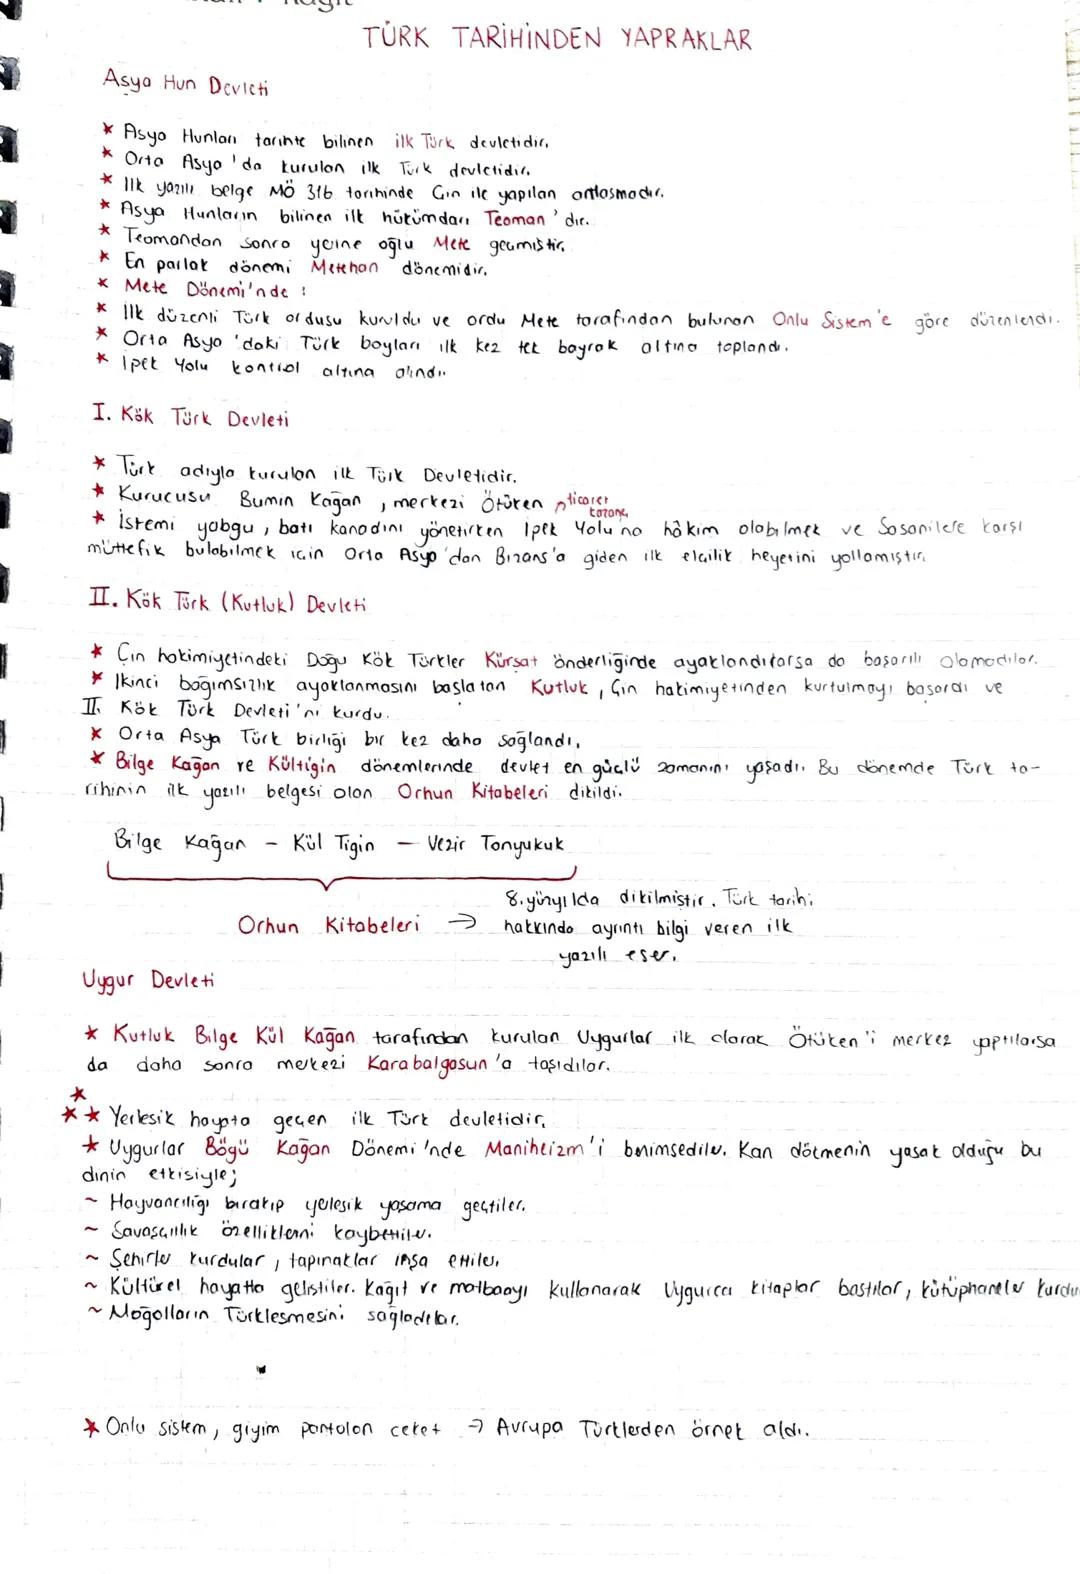 TÜRK TARİHİNDEN YAPRAKLAR
Asya Hun Devleti
* Asya Hunları tarihte bilinen ilk Türk devletidir.
* Orta Asya'da kurulan ilk Türk devletidir.
* İlk yazılı belge MÖ 316 tarihinde Çin ile yapılan antlaşmadır.
* Asya Hunların bilinen ilk hükümdarı Teoman'dır.
* Teomandan sonra yerine oğlu Mete geçmiştir.
* En parlak dönemi Metehan dönemidir.
* Mete Dönemi'nde :
* İlk düzenli Türk ordusu kuruldu ve ordu Mete tarafından bulunan Onlu Sistem'e göre düzenlendi.
* Orta Asya'daki Türk boyları ilk kez tek bayrak altına toplandı.
* İpek Yolu kontrol altına alındı.
I. Kök Türk Devleti
* Türk adıyla kurulan ilk Türk Devletidir.
* Kurucusu Bumin Kağan, merkezi Ötüken
ticaret
* İstemi yabgu, batı kanadını yönetirken İpek Yolu'na hâkim olabilmek ve Sasanilere karşı
müttefik bulabilmek için Orta Asya'dan Bizans'a giden ilk elçilik heyetini yollamıştır.
II. Kök Türk (Kutluk) Devleti
* Çin hakimiyetindeki Doğu Kök Türkler Kürşat önderliğinde ayaklandılarsa da başarılı olamadılar.
* İkinci bağımsızlık ayaklanmasını başlatan Kutluk, Çin hakimiyetinden kurtulmayı başardı ve
II. Kök Türk Devleti'ni kurdu.
* Orta Asya Türk birliği bir kez daha sağlandı.
* Bilge Kağan ve Kültigin dönemlerinde devlet en güçlü zamanını yaşadı. Bu dönemde Türk ta-
rihinin ilk yazılı belgesi olan Orhun Kitabeleri dikildi.
Bilge Kağan - Kül Tigin - Vezir Tonyukuk
8. yüzyılda dikilmiştir. Türk tarihi
Orhun Kitabeleri → hakkında ayrıntı bilgi veren ilk
yazılı eser.
Uygur Devleti
* Kutluk Bilge Kül Kağan tarafından kurulan Uygurlar ilk olarak Ötüken'i merkez yaptılarsa
da daha sonra merkezi Karabalgasun'a taşıdılar.
*
** Yerleşik hayata geçen ilk Türk devletidir.
* Uygurlar Bögü Kağan Dönemi'nde Maniheizm'i benimsediler. Kan dökmenin yasak olduğu bu
dinin etkisiyle;
~ Hayvancılığı bırakıp yerleşik yaşama geçtiler.
~ Savaşçılık özelliklerini kaybettiler.
~ Şehirler kurdular, tapınaklar inşa ettiler.
~ Kültürel hayatta geliştiler. Kağıt ve matbaayı kullanarak Uygurca kitaplar bastılar, kütüphaneler kurdu
~ Moğolların Türkleşmesini sağladılar.
* Onlu sistem, giyim pantolon ceket → Avrupa Türklerden örnek aldı.